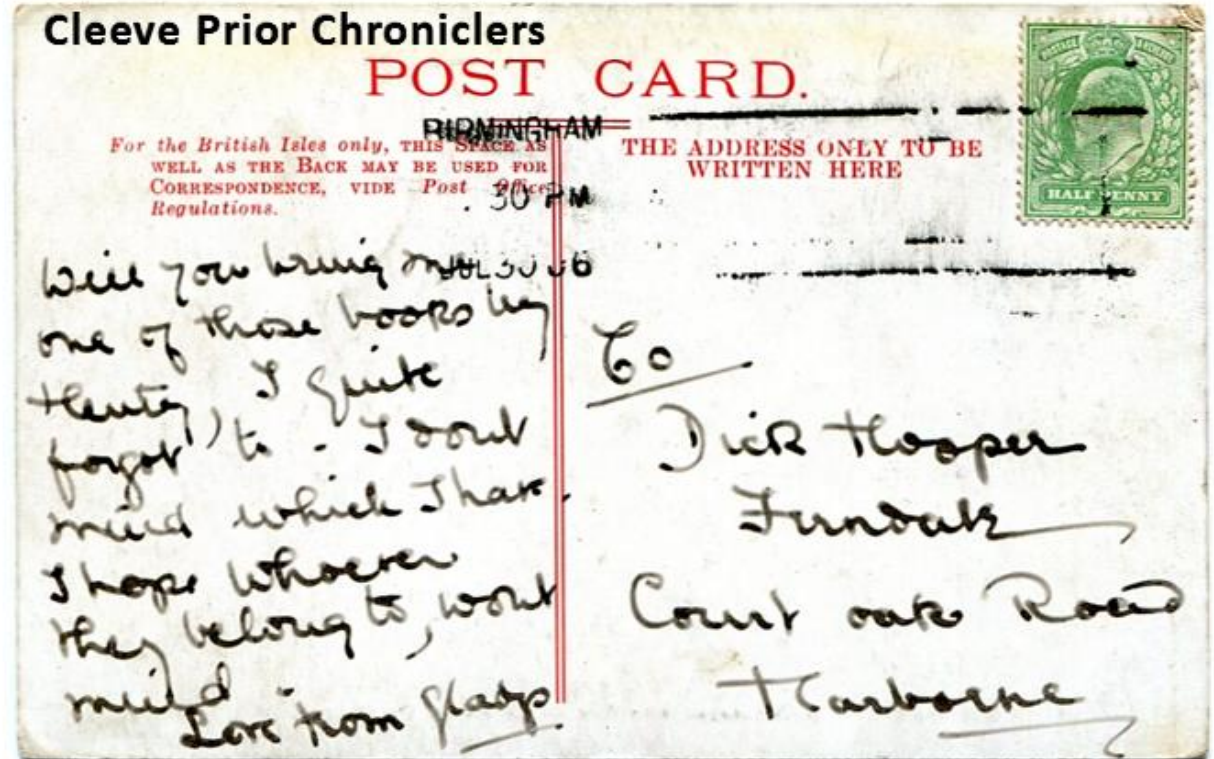 Cleeve Prior Chroniclers
POST CARD.
BIRMINGHAM
For the British Isles only, THIS SPACE AS
WELL AS THE BACK MAY BE USED FOR
CORRESPONDENCE, VIDE Post Office
Regulations.
THE ADDRESS ONLY TO BE
WRITTEN HERE
30 PM
JUL 30 06
HALFPENNY
Will you bring me
one of those books by
Henty, I quite
forgot to. I dont
mind which I have.
I hope whoever
they belong to, wont
mind.
Love from Gladys
To
Dick Hooper
Ferndale
Court oak Road
Harborne